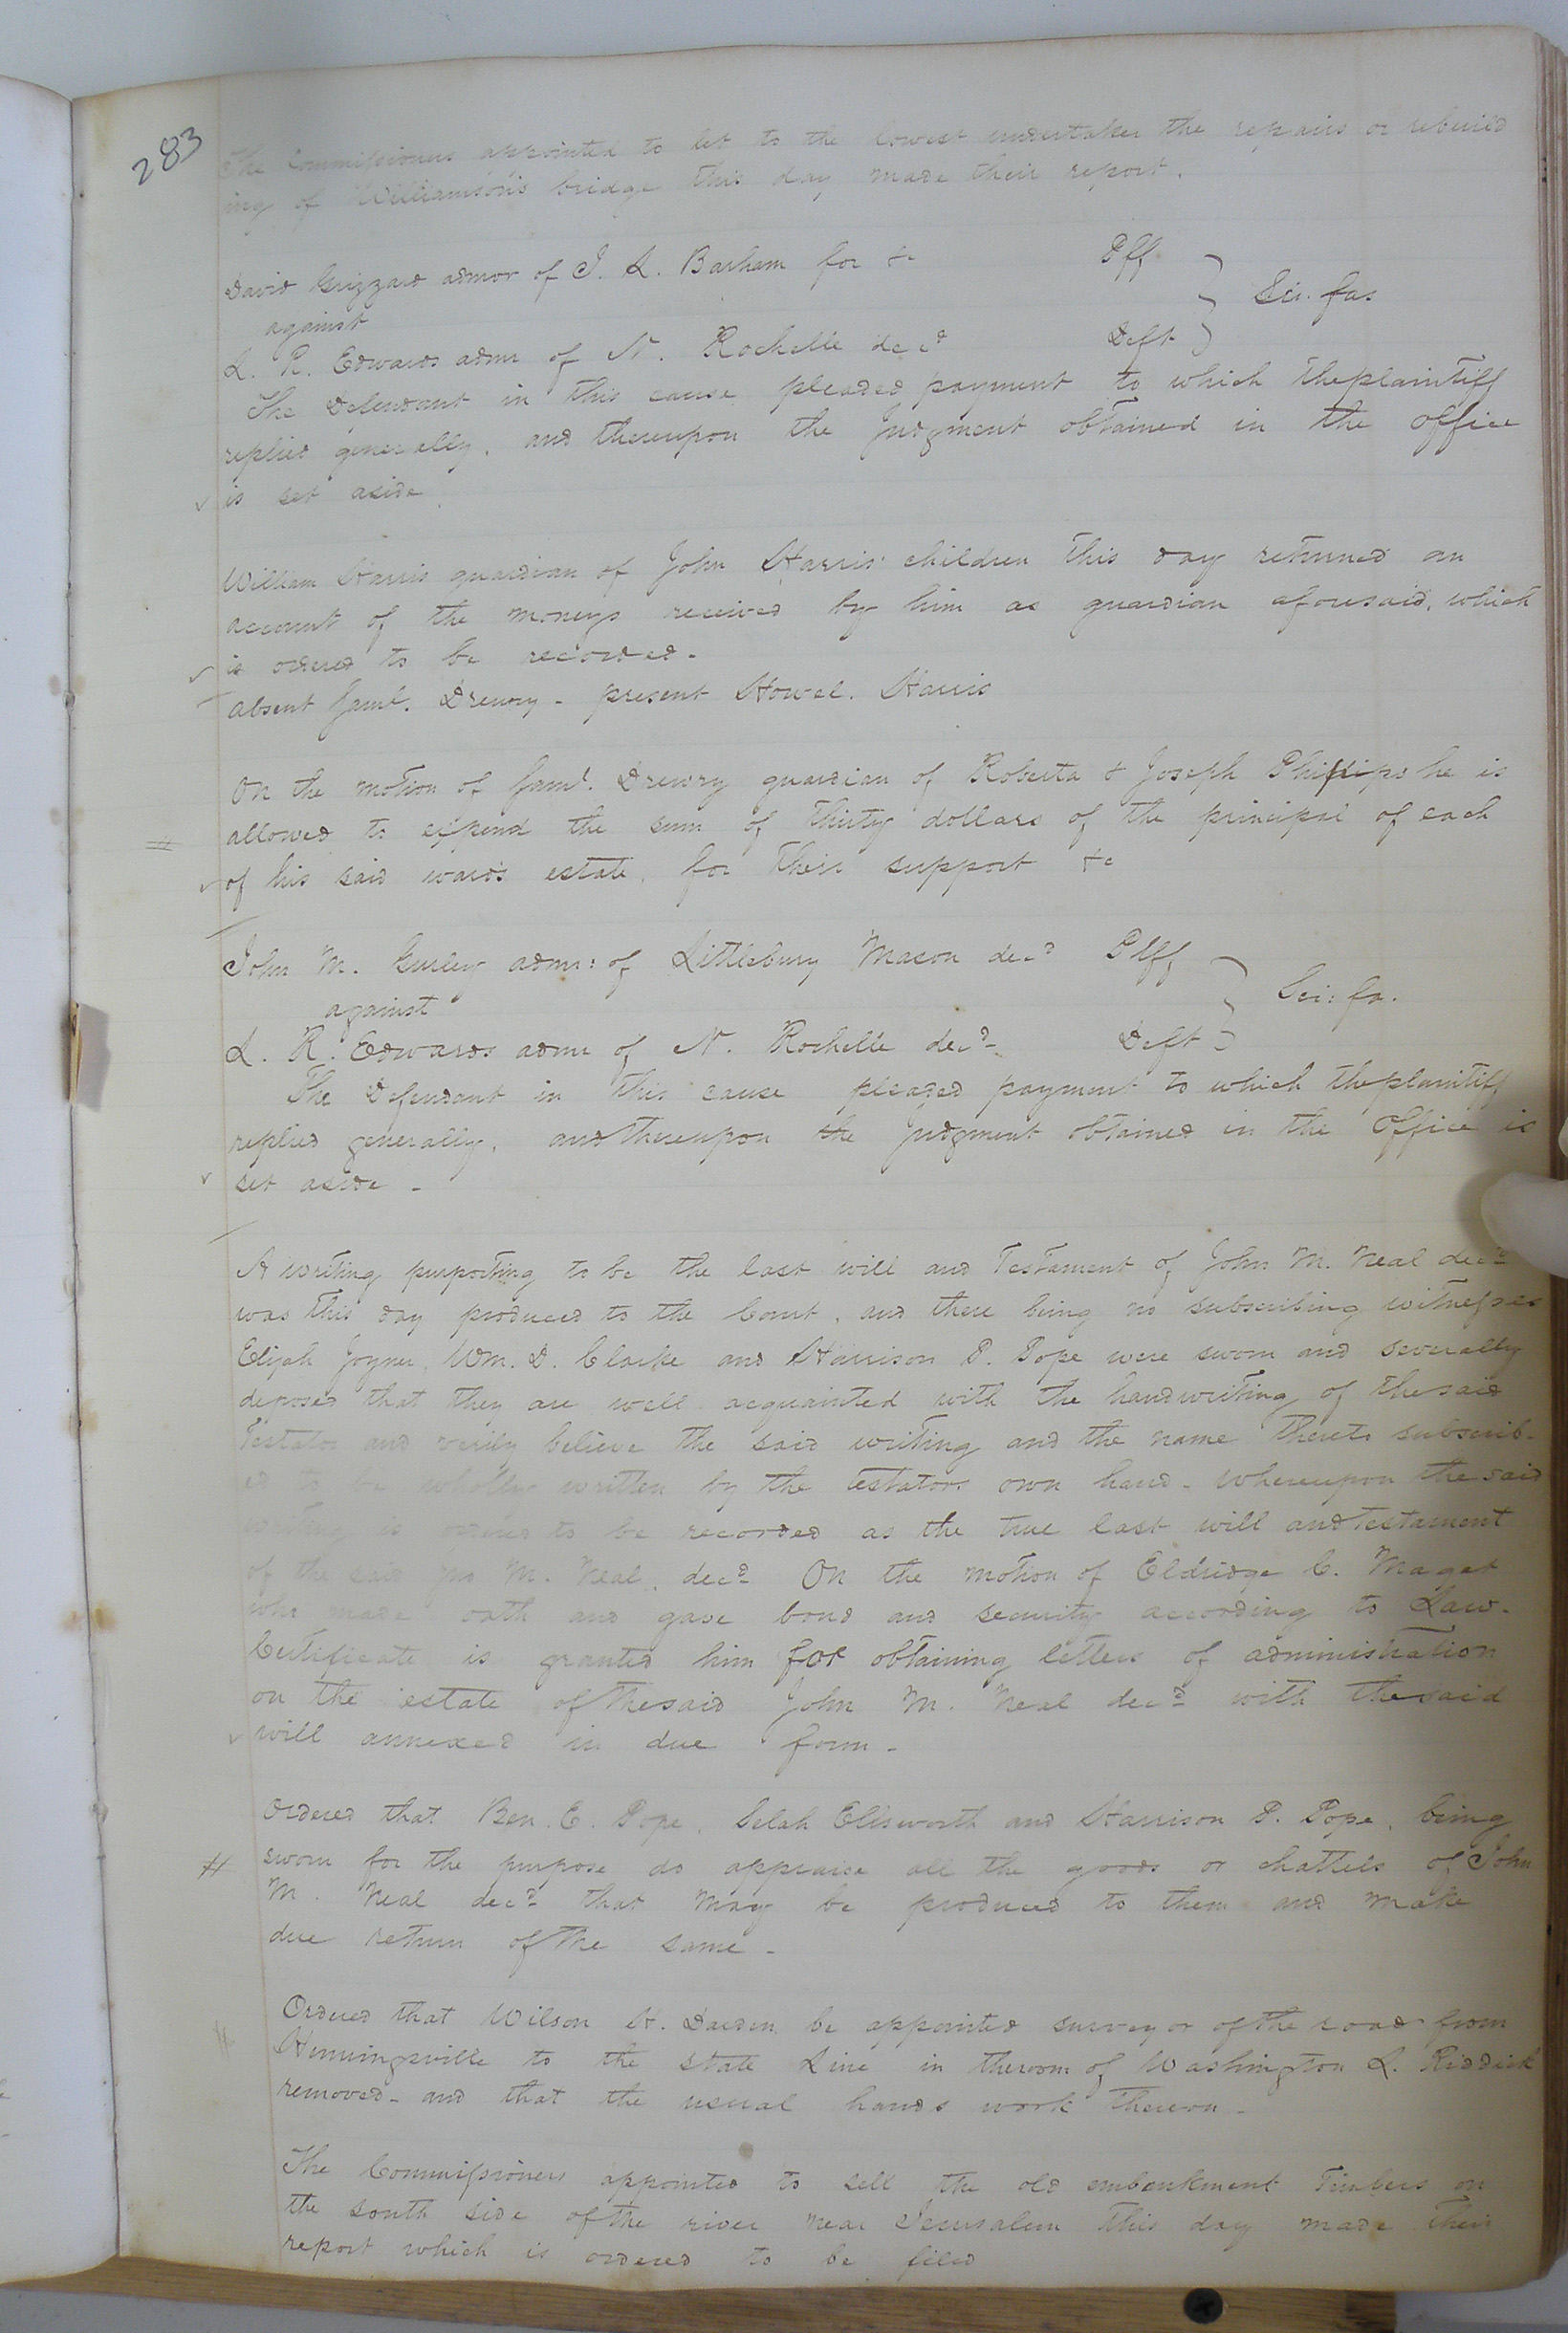 283
The Commissioners appointed to let to the lowest undertaker the repairs or rebuild
ing of Williamson's bridge this day made their report.
David Grizzard admor of J. L. Barham for &c Plff
against Sci. fas
L. R. Edwards admr of N. Rochelle decd Deft
The Defendant in this cause pleaded payment to which the plaintiff
replied generally, and thereupon the Judgment obtained in the office
is set aside.
William Harris guardian of John Harris' children this day returned an
account of the moneys received by him as guardian aforesaid, which
is ordered to be recorded -
absent Saml. Drewry - present Howel. Harris
On the motion of Saml. Drewry guardian of Roberta & Joseph Phillips he is
allowed to expend the sum of thirty dollars of the principal of each
of his said wards estate, for their support &c
John M. Gurley admr: of Littlebury Mason decd Plff
against Sci: fa.
L. R. Edwards admr of N. Rochelle decd Deft
The Defendant in this cause pleaded payment to which the plaintiff
replied generally, and thereupon the Judgment obtained in the Office is
set aside -
A writing purporting to be the last will and Testament of John M. Neal decd
was this day produced to the Court, and there being no subscribing witnesses
Elijah Joyner, Wm. D. Clarke and Harrison P. Pope were sworn and severally
deposed that they are well acquainted with the handwriting of the said
Testator and verily believe the said writing and the name thereto subscrib-
ed to be wholly written by the testators own hand - Whereupon the said
writing is ordered to be recorded as the true last will and testament
of the said Jno M. Neal, decd On the motion of Eldridge C. Maget
who made oath and gave bond and security according to Law.
Certificate is granted him for obtaining letters of administration
on the estate of the said John M. Neal decd with the said
will annexed in due form -
Ordered that Ben. E. Pope, Selah Ellsworth and Harrison P. Pope, being
sworn for the purpose do appraise all the goods or chattels of John
M. Neal decd that may be produced to them and make
due return of the same -
Ordered that Wilson H. Darden be appointed surveyor of the road from
Hemingsville to the State Line in the room of Washington L. Riddick
removed - and that the usual hands work thereon -
The Commissioners appointed to sell the old embankment Timbers on
the south side of the river near Jerusalem this day made their
report which is ordered to be filed